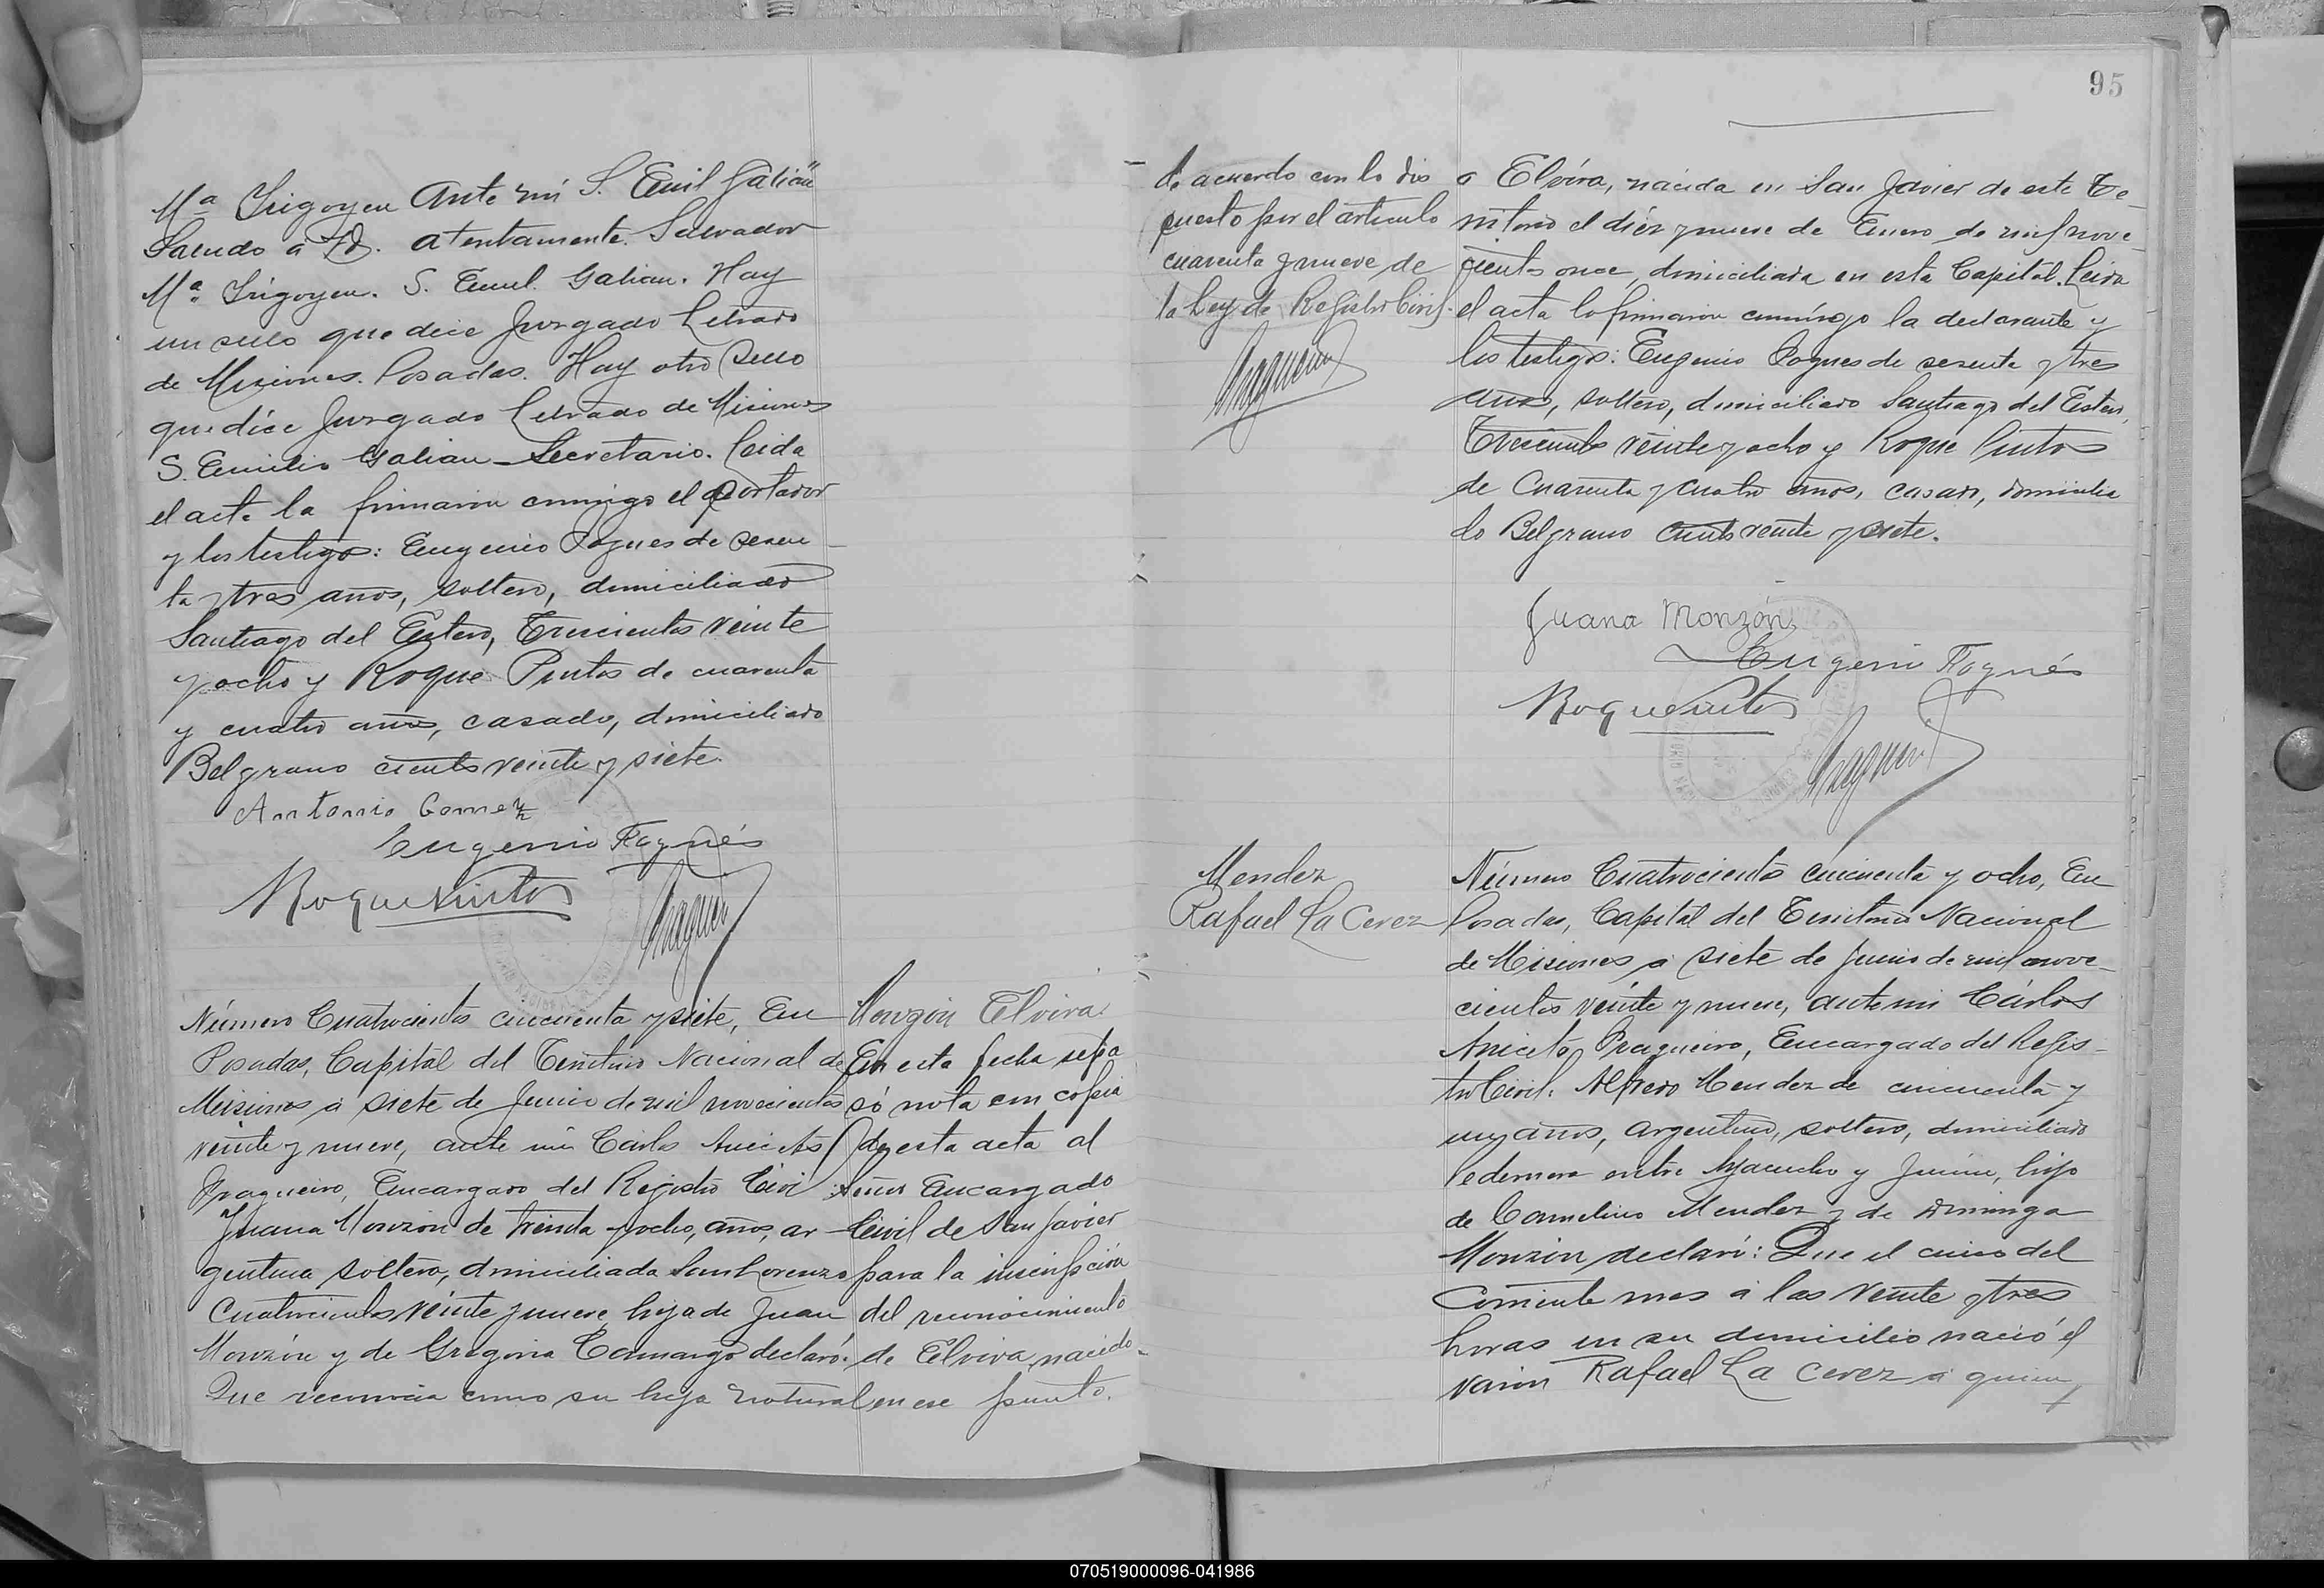 Ma Irigoyen Ante mí S. Emil Galián"
Saludo a Vd. atentamente. Salvador
Ma. Irigoyen. S. Emil. Galian. Hay
un sello que dice Juzgado Letrado
de Misiones. Posadas. Hay otro sello
que dice Juzgado Letrado de Misiones
S. Emilio Galian - Secretario. Leida
el acta la firmaron conmigo el portador
y los testigos: Eugenio Fognes de sesen-
ta y tres años, soltero, domiciliado
Santiago del Estero, Trescientos veinte
y ocho y Roque Pintos de cuarenta
y cuatro años, casado, domiciliado
Belgrano ciento veinte y siete.
Antonio Gomez
Eugenio Fognés
Roque Pintos
Número Cuatrocientos cincuenta y siete, En
Posadas, Capital del Territorio Nacional de
Misiones a siete de Junio de mil novecientos
veinte y nueve, ante mi Carlos Aniceto
Fragueiro, Encargado del Registro Civil:
Juana Monzón de treinta y ocho, años, ar-
gentina soltera, domiciliada San Lorenzo
Cuatrocientos veinte y nueve, hija de Juan
Monzón y de Gregoria Camargo declaró:
Que reconocia como su hija natural
Monzón Elvira
En esta fecha se pa
só nota con copia
de esta acta al
Señor Encargado
Civil de San Javier
para la inscripción
del reconocimiento
de Elvira, nacido
en ese punto.
95
de acuerdo con lo dis
puesto por el artículo
cuarenta y nueve de
la Ley de Registro Civil.
a Elvira, nacida en San Javier de este Te-
rritorio el diez y nueve de Enero de mil nove-
cientos once, domiciliada en esta Capital. Leida
el acta la firmaron conmigo la declarante y
los testigos: Eugenio Fognes de sesenta y tres
años, soltero, domiciliado Santiago del Estero,
Trescientos veinte y ocho y Roque Pintos
de Cuarenta y cuatro años, casado, domicilia
do Belgrano ciento veinte y siete.
Juana Monzón
Eugenio Fognés
Roque Pintos
Mendez
Rafael La Cerez
Número Cuatrocientos cincuenta y ocho, En
Posadas, Capital del Territorio Nacional
de Misiones a siete de Junio de mil nove-
cientos veinte y nueve, ante mi Cárlos
Aniceto Fragueiro, Encargado del Regis-
tro Civil: Alfredo Mendez de cincuenta y
un años, argentino, soltero, domiciliado
Pedernera entre Ayacucho y Junin, hijo
de Carmelino Mendez y de Dominga
Monzón, declaró: Que el cinco del
Corriente mes a las veinte y tres
horas en su domicilio nació el
varón Rafael La Cerez a quien
070519000096-041986